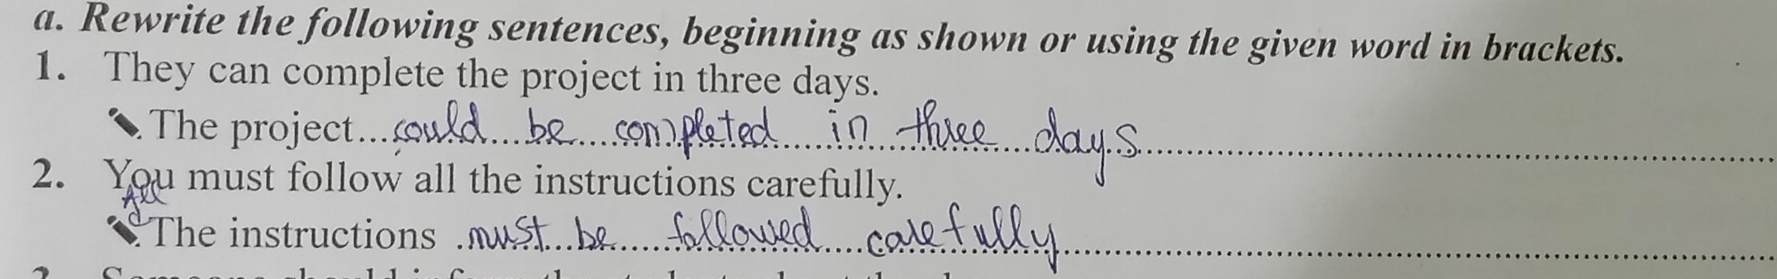 a. Rewrite the following sentences, beginning as shown or using the given word in brackets.
1. They can complete the project in three days.
The project...could...be....completed....in...three...days.
2. You must follow all the instructions carefully.
All The instructions .must...be.....followed....carefully